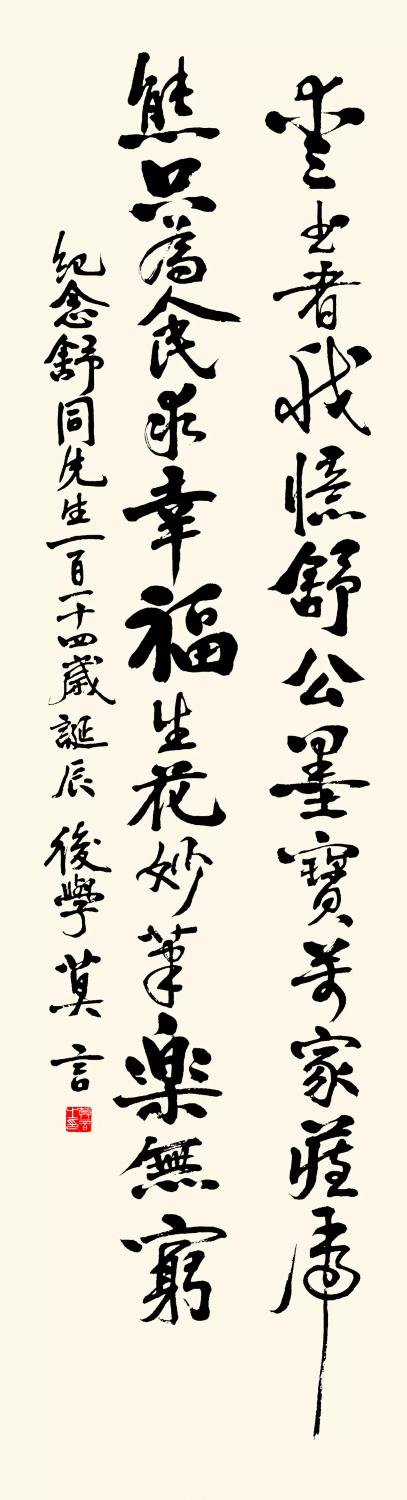 愛書者我憶舒公墨寶萬家藏虎
熊只為人民求幸福生花妙筆樂無窮
紀念舒同先生一百一十四歲誕辰 後學 莫言